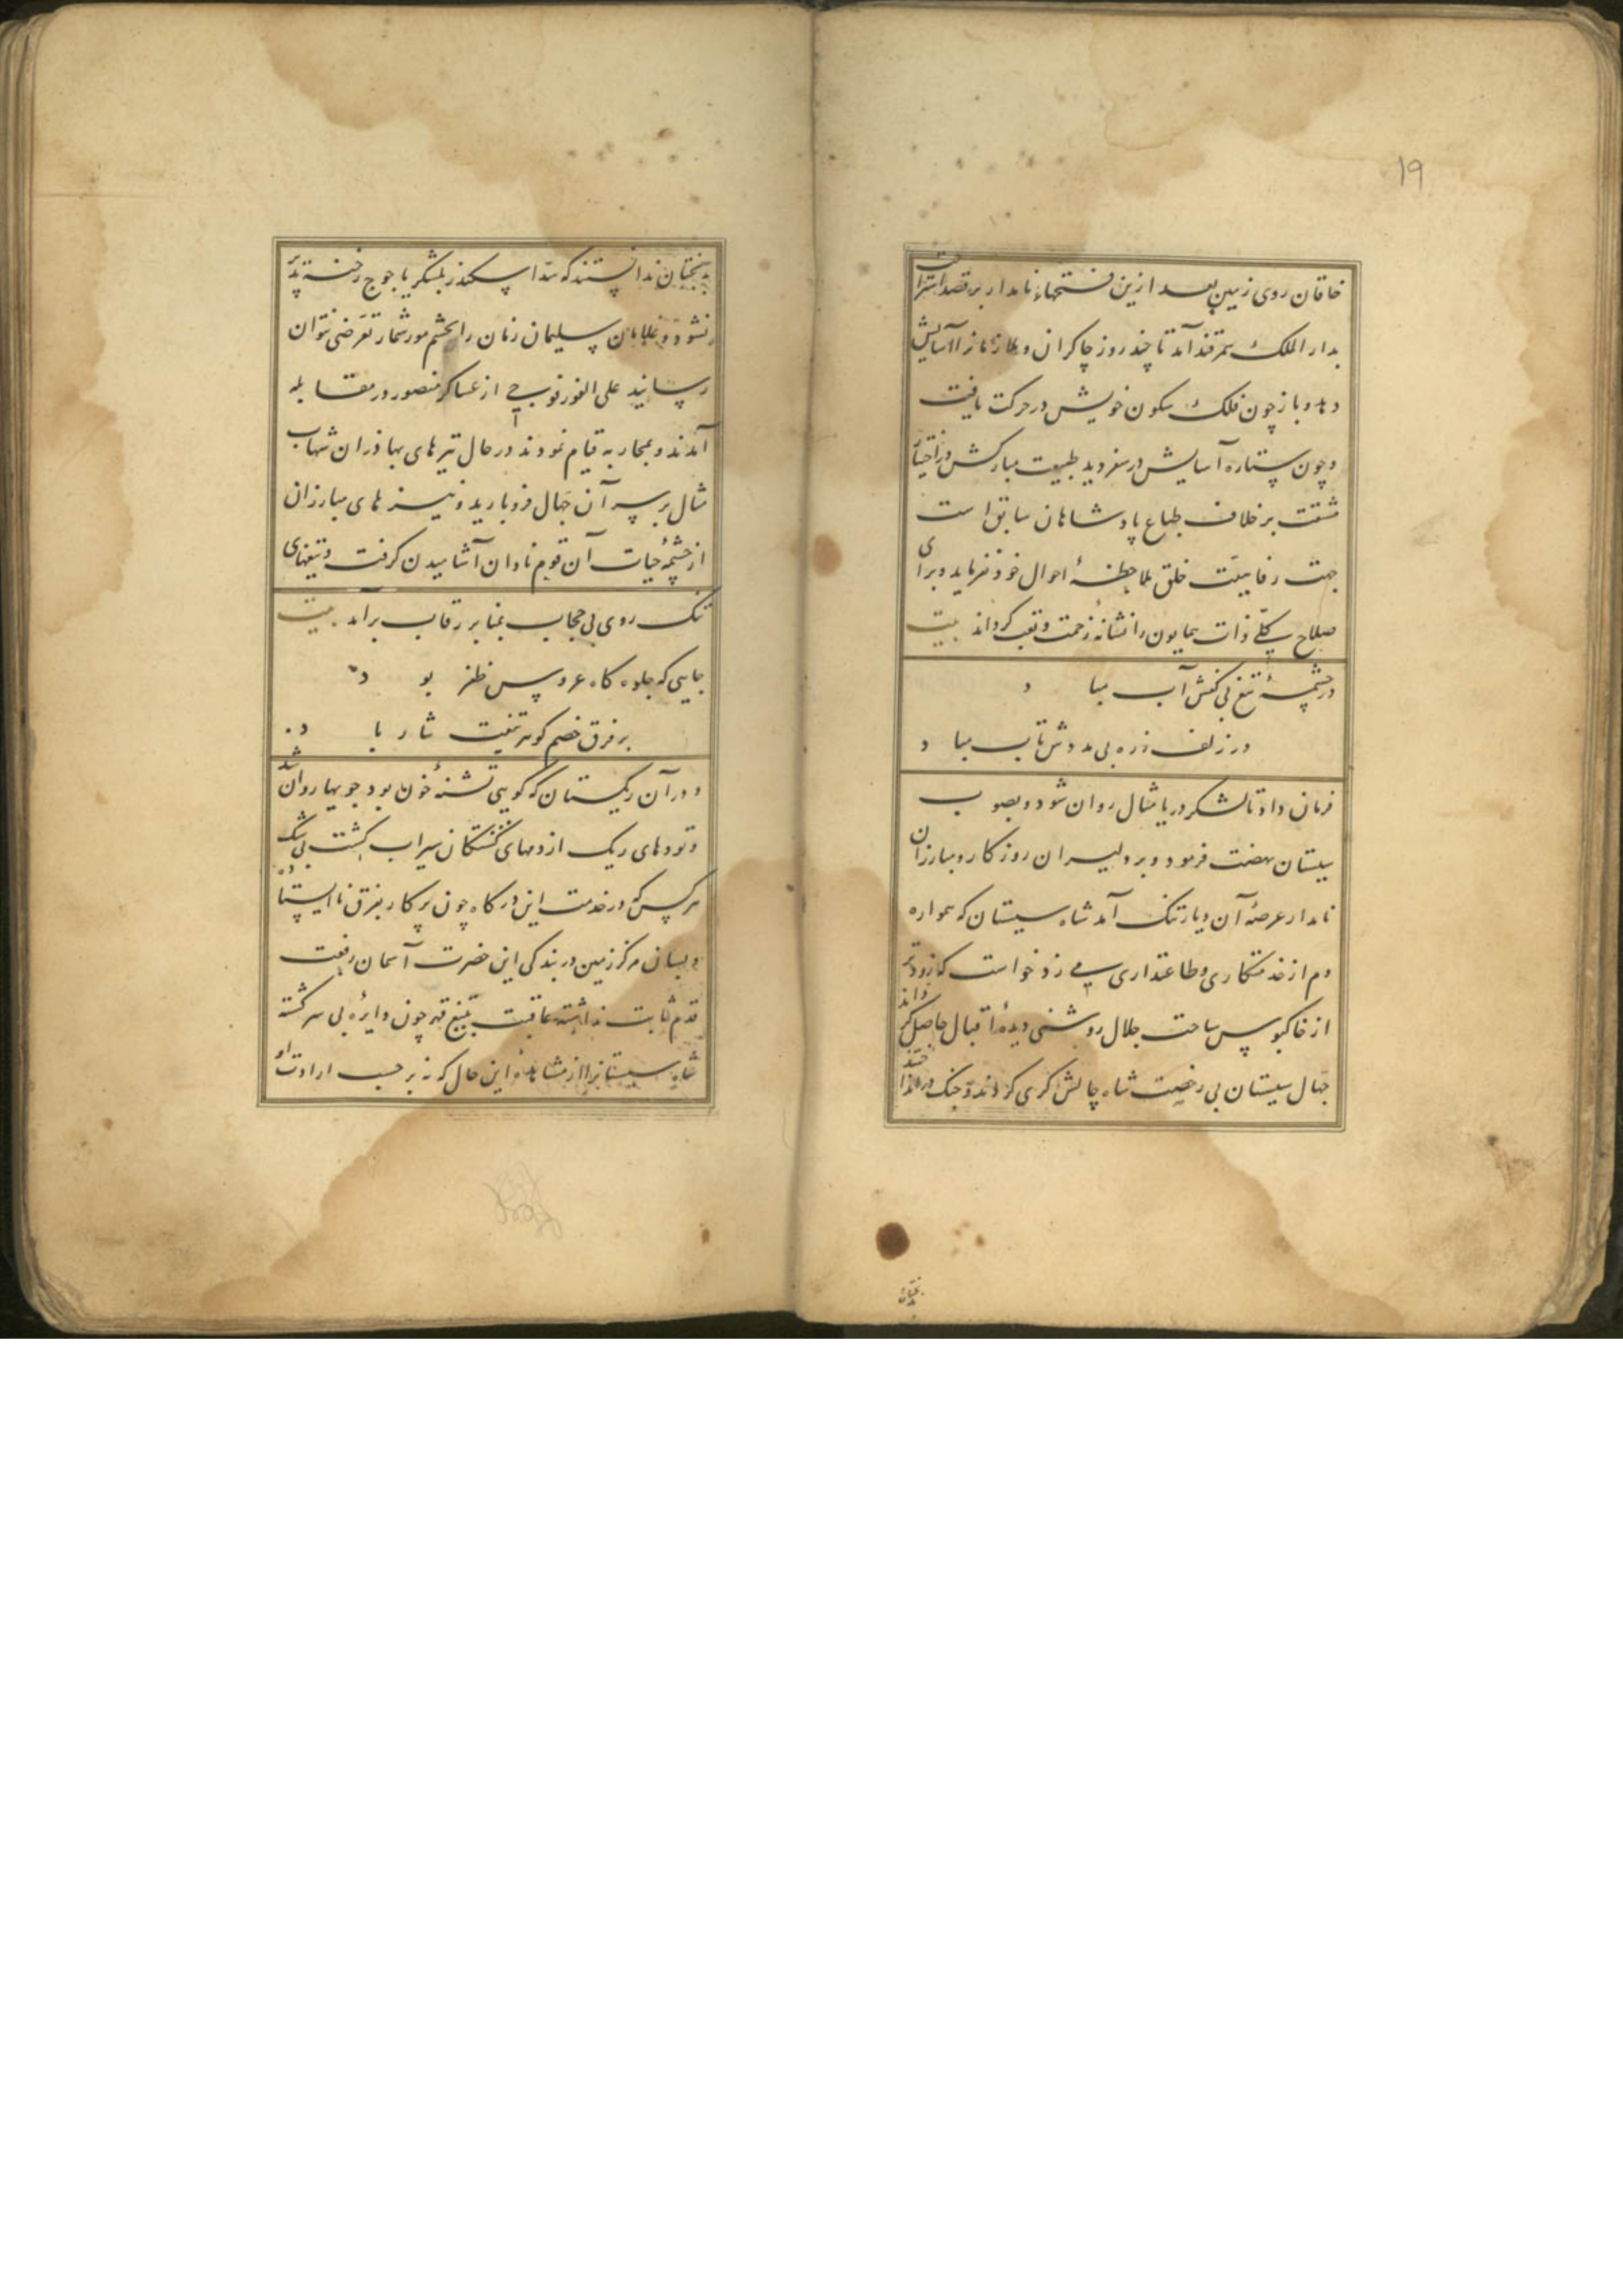 ۱۹
خاقان روی زمین بعد ازین فتحهاء نامدار بر قصد استراحت
بدار الملک سمرقند آمد تا چند روز چاکران و ملازمانرا آسایش
دهد و باز چون فلک سکون خویش در حرکت یافت
و چون ستاره آسایش در سفر دید طبیعت مبارکش در احتیاز
مشقت بر خلاف طباع پادشاهان سابق است
جهت رفاهیت خلق ملاحظهٔ احوال خود نفرماید و برای
صلاح کلی ذات همایون را نشانهٔ زحمت و تعب کرداند بیت
در چشمهٔ تیغ بی کفش آب مباد
در زلف زره بی مدوش تاب مباد
فرمان داد تا لشکر دریا مثال روان شود و بصوب
سیستان نهضت فرمود و بر دلیران روزکار و مبارزان
نامدار عرصهٔ آن دیار تنک آمد شاه سیستان که همواره
دم از خدمتکاری و طاعتداری می زد خواست که زودتر
از خاکبوس ساحت جلال روشنی دیدهٔ اقبال حاصل کرداند
جهال سیستان بی رخصت شاه چالش کری کردند و جنک در انداختند
بدبختان
بدبختان ندانستند که سد اسکندر بلشکر یاجوج رخنه پذیر
نشود و غلامان سلیمان زمان را بحشم مور شمار تعرضی نتوان
رسانید علی الفور فوجی از عساکر منصور در مقابله
آمدند و بمحاربه قیام نمودند در حال تیرهای بهادران شهاب
مثال بر سر آن جهال فرو بارید و نیزهای مبارزان
از چشمهٔ حیات آن قوم نادان آشامیدن کرفت و تیغهای
تنک روی بی حجاب بمنابر رقاب برآمد بیت
جایی که جلوه کاه عروس ظفر بود
بر فرق خصم کوهر تیغت نثار باد
و در آن ریکستان که کویی تشنهٔ خون بود جویها روان شد
و تودهای ریک از دمهای کشتکان سیراب کشت بی شک
هر کس که در خدمت این درکاه چون پرکار بفرق نا ایستاده
و بسان مرکز زمین در بندکی این حضرت آسمان رفعت
قدم ثابت نداشته عاقبت بتیغ قهر چون دایره بی سر کشته
شاه سیستانرا از مشاهدهٔ این حال که نه بر حسب ارادت او